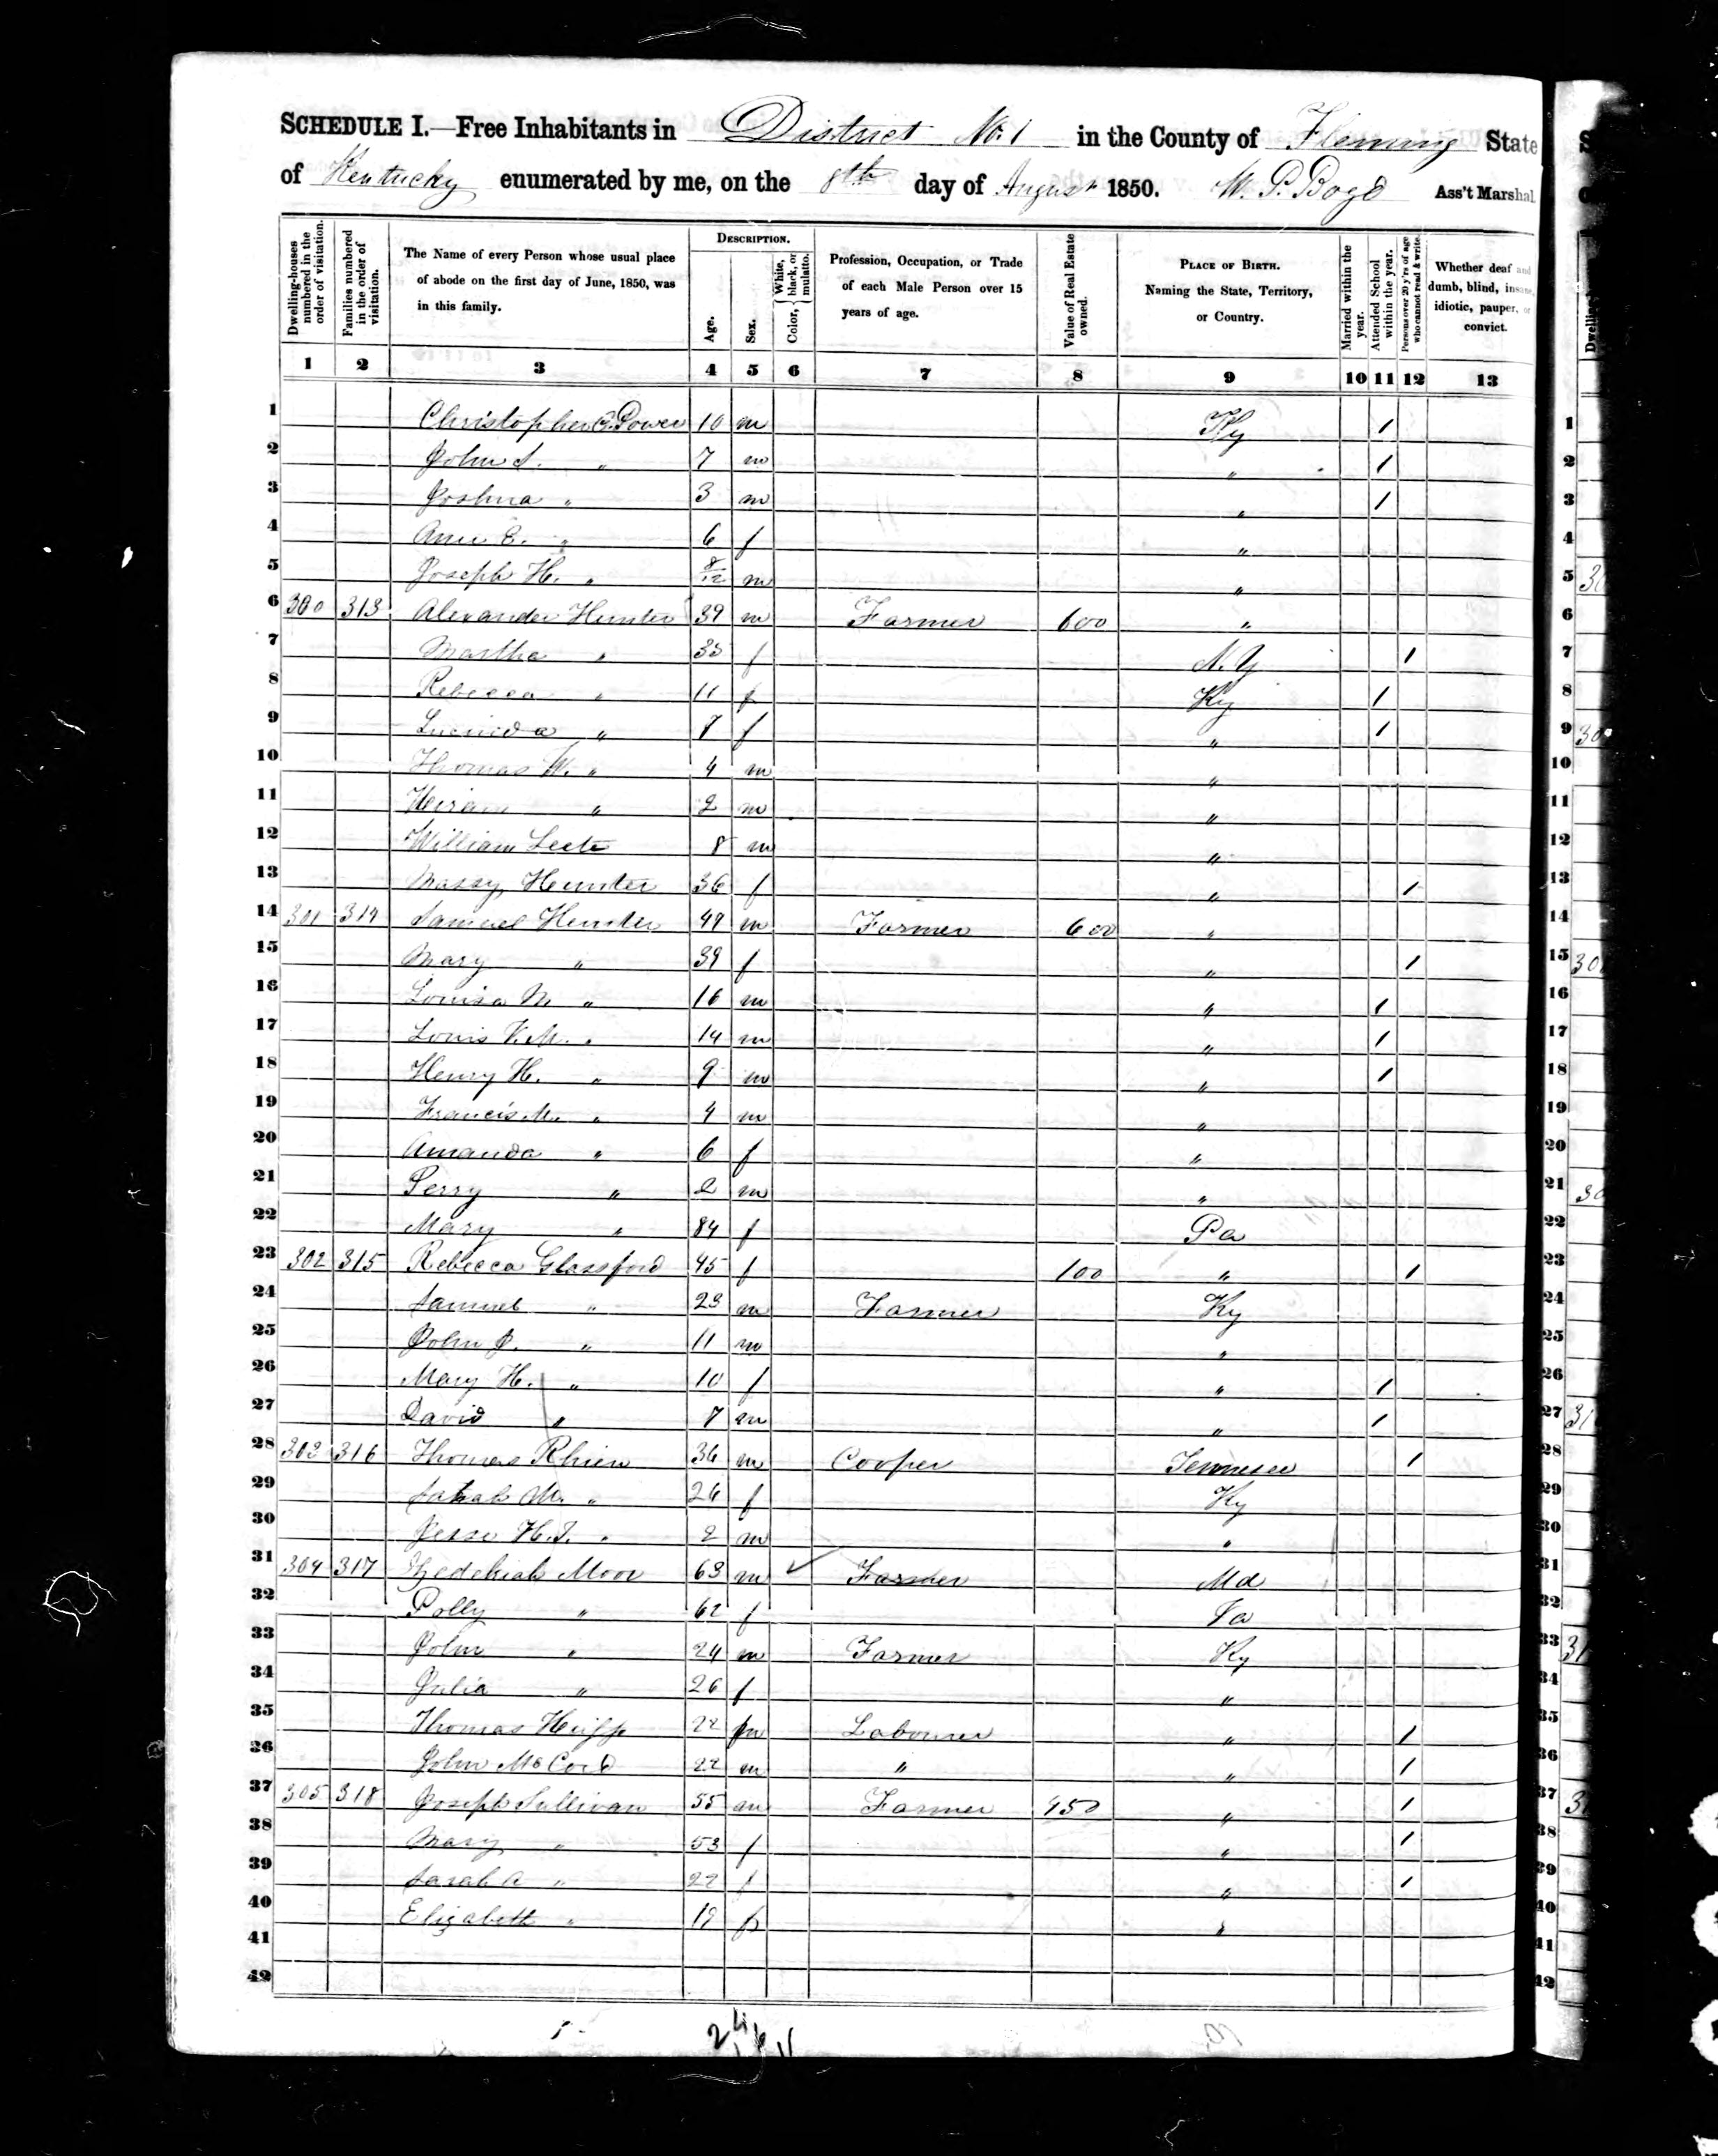 SCHEDULE I.—Free Inhabitants in District No. 1 in the County of Fleming State
of Kentucky enumerated by me, on the 8th day of August 1850. W. P. Boyd Ass't Marshal
Dwelling-houses numbered in the order of visitation.
Families numbered in the order of visitation.
The Name of every Person whose usual place of abode on the first day of June, 1850, was in this family.
DESCRIPTION.
Age.
Sex.
Color, { White, black, or mulatto.
Profession, Occupation, or Trade of each Male Person over 15 years of age.
Value of Real Estate owned.
PLACE OF BIRTH. Naming the State, Territory, or Country.
Married within the year.
Attended School within the year.
Persons over 20 y'rs of age who cannot read & write.
Whether deaf and dumb, blind, insane, idiotic, pauper, or convict.
1 2 3 4 5 6 7 8 9 10 11 12 13
1 Christopher C. Power 10 m Ky / 1
2 John S. " 7 m " / 2
3 Joshua " 3 m " / 3
4 Ann E. " 6 f " 4
5 Joseph H. " 8/12 m " 5
6 300 313 Alexander Hunter 39 m Farmer 600 " 6
7 Martha " 33 f N. Y / 7
8 Rebecca " 11 f Ky / 8
9 Lucinda " 7 f " / 9
10 Thomas W. " 4 m " 10
11 Hiram " 2 m " 11
12 William 8 m " 12
13 Massy Hunter 36 f " / 13
14 301 314 Samuel Hunter 49 m Farmer 600 " 14
15 Mary " 39 f " / 15
16 Louisa M. " 16 m " / 16
17 Louis V. M. " 14 m " / 17
18 Henry H. " 9 m " / 18
19 Francis M. " 4 m " 19
20 Amanda " 6 f " 20
21 Perry " 2 m " 21
22 Mary " 84 f Pa 22
23 302 315 Rebecca Glassford 45 f 100 " / 23
24 Samuel " 23 m Farmer Ky 24
25 John J. " 11 m " 25
26 Mary H. " 10 f " / 26
27 David " 7 m " / 27
28 303 316 Thomas Rhien 36 m Cooper Tennesee / 28
29 Sarah M. " 26 f Ky 29
30 Jesse H. T. " 2 m " 30
31 304 317 Zedekiah Moor 63 m ✓ Farmer Md 31
32 Polly " 62 f Va 32
33 John " 24 m Farmer Ky 33
34 Julia " 26 f " 34
35 Thomas 22 m Labourer " / 35
36 John McCord 22 m " " / 36
37 305 318 Joseph Sullivan 55 m Farmer 450 " / 37
38 Mary " 53 f " / 38
39 Sarah A " 22 f " / 39
40 Elizabeth " 19 f " 40
41 41
42 42